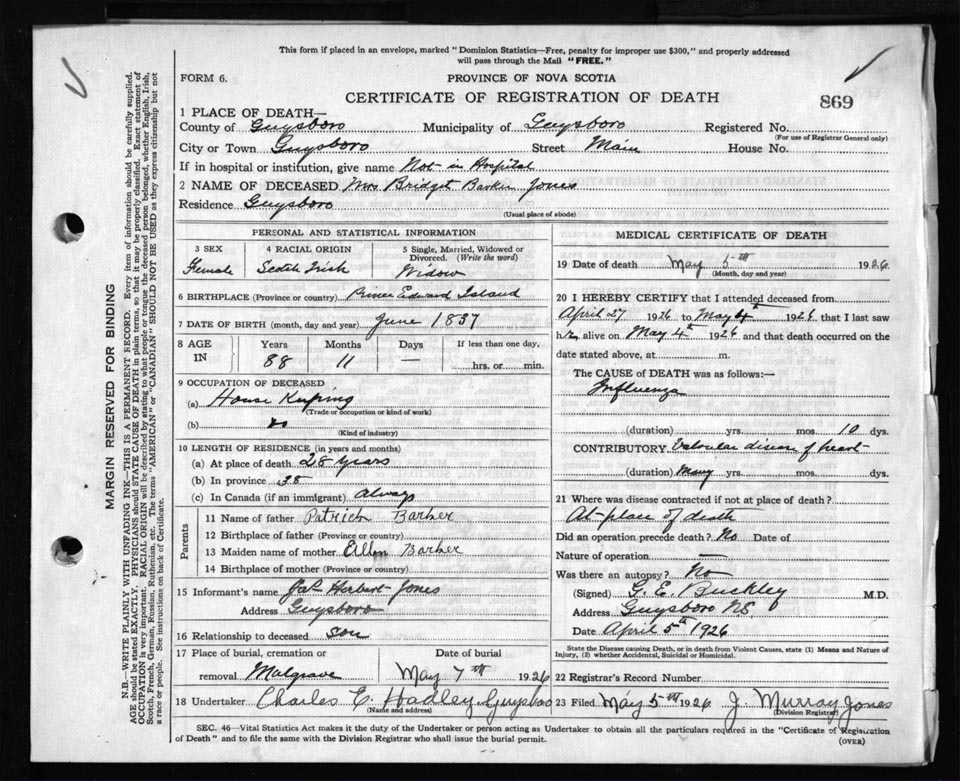 This form if placed in an envelope, marked "Dominion Statistics—Free, penalty for improper use $300," and properly addressed
will pass through the Mail "FREE."
FORM 6.
PROVINCE OF NOVA SCOTIA
CERTIFICATE OF REGISTRATION OF DEATH
869
1 PLACE OF DEATH—
County of Guysboro Municipality of Guysboro Registered No.
(For use of Registrar General only)
City or Town Guysboro Street Main House No.
If in hospital or institution, give name Not in Hospital
2 NAME OF DECEASED Mrs Bridget Barker Jones
Residence Guysboro
(Usual place of abode)
PERSONAL AND STATISTICAL INFORMATION
3 SEX 4 RACIAL ORIGIN 5 Single, Married, Widowed or
Divorced. (Write the word)
Female Scotch Irish Widow
6 BIRTHPLACE (Province or country) Prince Edward Island
7 DATE OF BIRTH (month, day and year) June 1837
8 AGE Years Months Days If less than one day,
IN 88 11 — hrs. or min.
9 OCCUPATION OF DECEASED
(a) House Keeping
(Trade or occupation or kind of work)
(b)
(Kind of industry)
10 LENGTH OF RESIDENCE (in years and months)
(a) At place of death 28 years
(b) In province 38
(c) In Canada (if an immigrant) Always
Parents
11 Name of father Patrick Barker
12 Birthplace of father (Province or country)
13 Maiden name of mother Ellen Barker
14 Birthplace of mother (Province or country)
15 Informant's name Herbert Jones
Address Guysboro
16 Relationship to deceased son
17 Place of burial, cremation or Date of burial
removal Mulgrave May 7th 1926
18 Undertaker Charles E Hadley Guysboro
(Name and address)
MEDICAL CERTIFICATE OF DEATH
19 Date of death May 5th 1926
(Month, day and year)
20 I HEREBY CERTIFY that I attended deceased from
April 27 1926 to May 4th 1926, that I last saw
her alive on May 4th 1926 and that death occurred on the
date stated above, at m.
The CAUSE of DEATH was as follows:—
Influenza
(duration) yrs. mos. 10 dys.
CONTRIBUTORY. Valvular disease of heart
(duration) Many yrs. mos. dys.
21 Where was disease contracted if not at place of death?
At place of death
Did an operation precede death? No Date of
Nature of operation —
Was there an autopsy? No
(Signed) G. E. Buckley M.D.
Address Guysboro NS.
Date April 5th 1926
State the Disease causing Death, or in death from Violent Causes, state (1) Means and Nature
of Injury, (2) whether Accidental, Suicidal or Homicidal.
22 Registrar's Record Number
23 Filed May 5th 1926 J. Murray Jones
(Division Registrar)
SEC. 46—Vital Statistics Act makes it the duty of the Undertaker or person acting as Undertaker to obtain all the particulars required in the "Certificate of Registration
of Death" and to file the same with the Division Registrar who shall issue the burial permit.
(OVER)
MARGIN RESERVED FOR BINDING
N.B.—WRITE PLAINLY WITH UNFADING INK—THIS IS A PERMANENT RECORD. Every item of information should be carefully supplied.
AGE should be stated EXACTLY. PHYSICIANS should STATE CAUSE OF DEATH in plain terms, so that it may be properly classified. Exact statement of
OCCUPATION is very important. RACIAL ORIGIN will be described by stating to what people or tongue the deceased person belonged, whether English, Irish,
Scotch, French, German, Russian, Ruthenian, etc. The terms "AMERICAN" or "CANADIAN" SHOULD NOT BE USED as they express citizenship but not
a race or people. See instructions on back of Certificate.